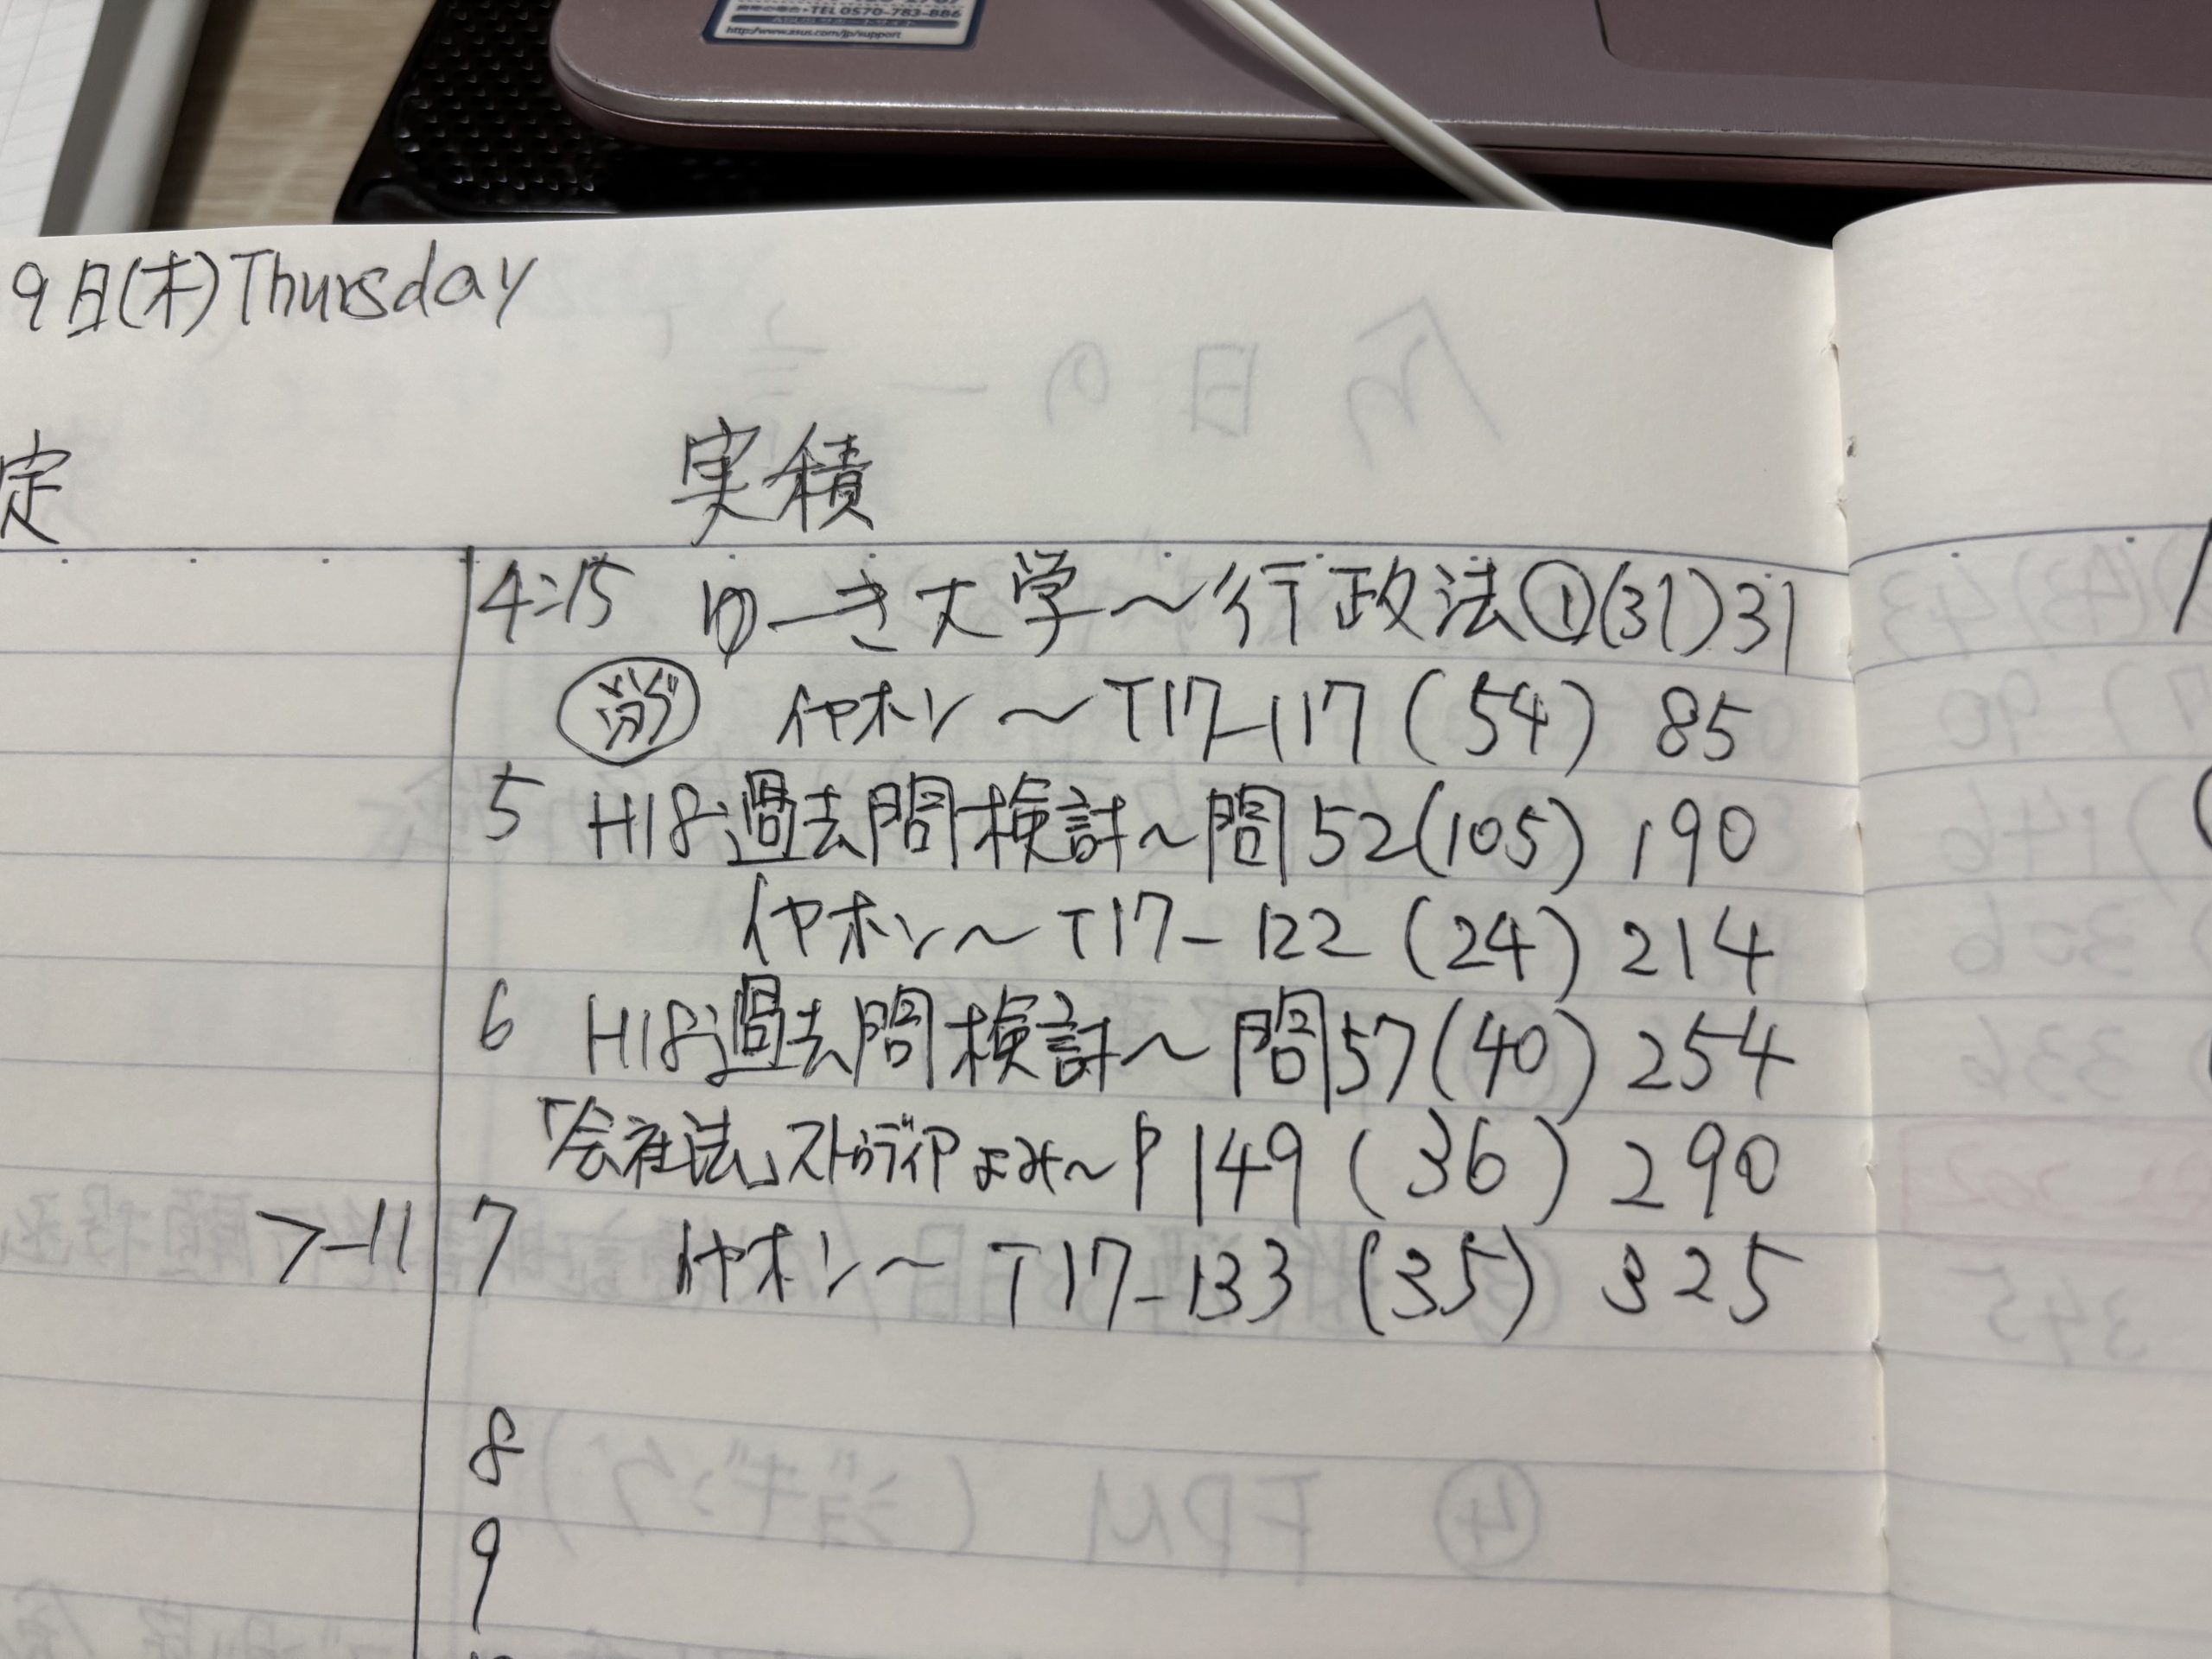 TEL 0570-783-886
http://www.asus.com/jp/support
9日(木)Thursday
定
実積
4:15 ゆーき大学〜行政法①(31)31
イヤホン〜T17-117(54) 85
5 H18過去問検討〜問52(105) 190
イヤホン〜T17-122(24)214
6 H18過去問検討〜問57(40)254
「会社法」ストゥディア よみ〜P149(36)290
7-11
7 イヤホン〜T17-133(35)325
8
9